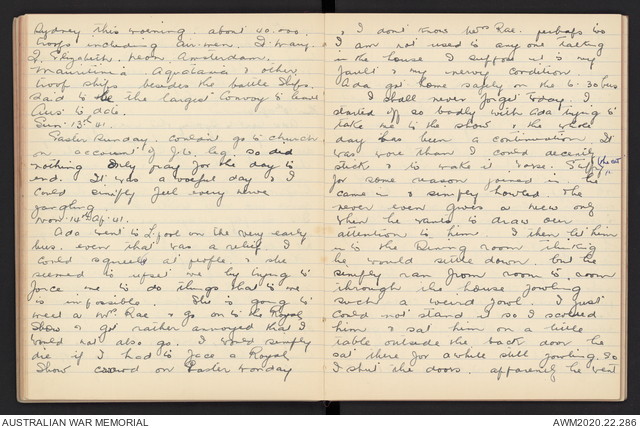 Sydney this morning. about 40.000.
troops including air men. I. Mary.
Q. Elizabeth. neon. Amsterdam.
Mauritinia Aquatania & other
troop ships besides the battle ships.
Said to be the largest Convoy to leave
Aus: to date.
Sun. 13th 41.
Easter Sunday. Couldn't go to church
on account of J.W. leg so did
nothing Only pray for the day to
end. It was a woeful day & I
could simply feel every nerve
jangling.
Mon. 14th Ap. 41.
Ada went to L'pool on the very early
bus. even that was a relief. I
could at people. & she
seemed to upset me by trying to
force me to do things that to me
is impossible. She is going to
meet a Mrs Rae, & go on to the Royal
Show & got rather annoyed that I
would not also go. I would simply
die if I had to face a Royal
Show crowd on Easter Monday
& I don't know Mrs Rae. perhaps too
I am not used to any one talking
in the house I suppose it is my
fault & my nervy condition.
Ada got home safely on the 6.30 bus
I shall never forget today. I
started off so badly with Ada trying to
take me to the show & the whole
day has been a continuation. It
was more than I could decently
stick & to make it worse. Stiffy (the cat)
for some reason joined in. he
came in & simply howled. He
never even gives a mew only
when he wants to draw our
attention to him. I then let him
into the Dining room thinking
he would settle down. but he
simply ran from room to room
through the house yowling
such a weird yowl. I just
could not stand it so I scolded
him & sat him on a little
table outside the back door he
sat there for awhile still yowling. So
I shut the doors. apparently he went
AUSTRALIAN WAR MEMORIAL
AWM2020.22.286